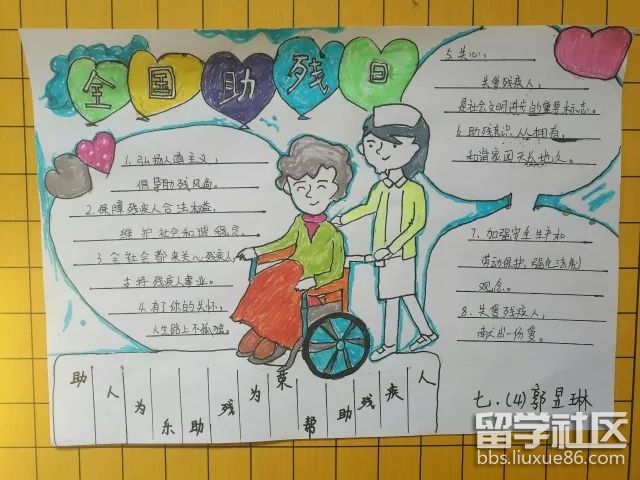 全国助残日
1. 弘扬人道主义,
倡导助残风尚。
2. 保障残疾人合法权益,
维护社会和谐稳定。
3. 全社会都来关心残疾人,
支持残疾人事业。
4. 有了你的关怀,
人生路上不孤独。
关心,
关爱残疾人,
是社会文明进步的重要标志。
6. 助残意识人人拥有,
和谐家园天长地久。
7. 加强安全生产和
劳动保护,强化法制
观念。
8. 关爱残疾人,
献出一份爱。
助人为乐助残为荣帮助残疾人
七.(4)郭昱琳
留学社区
bbs.liuxue86.com